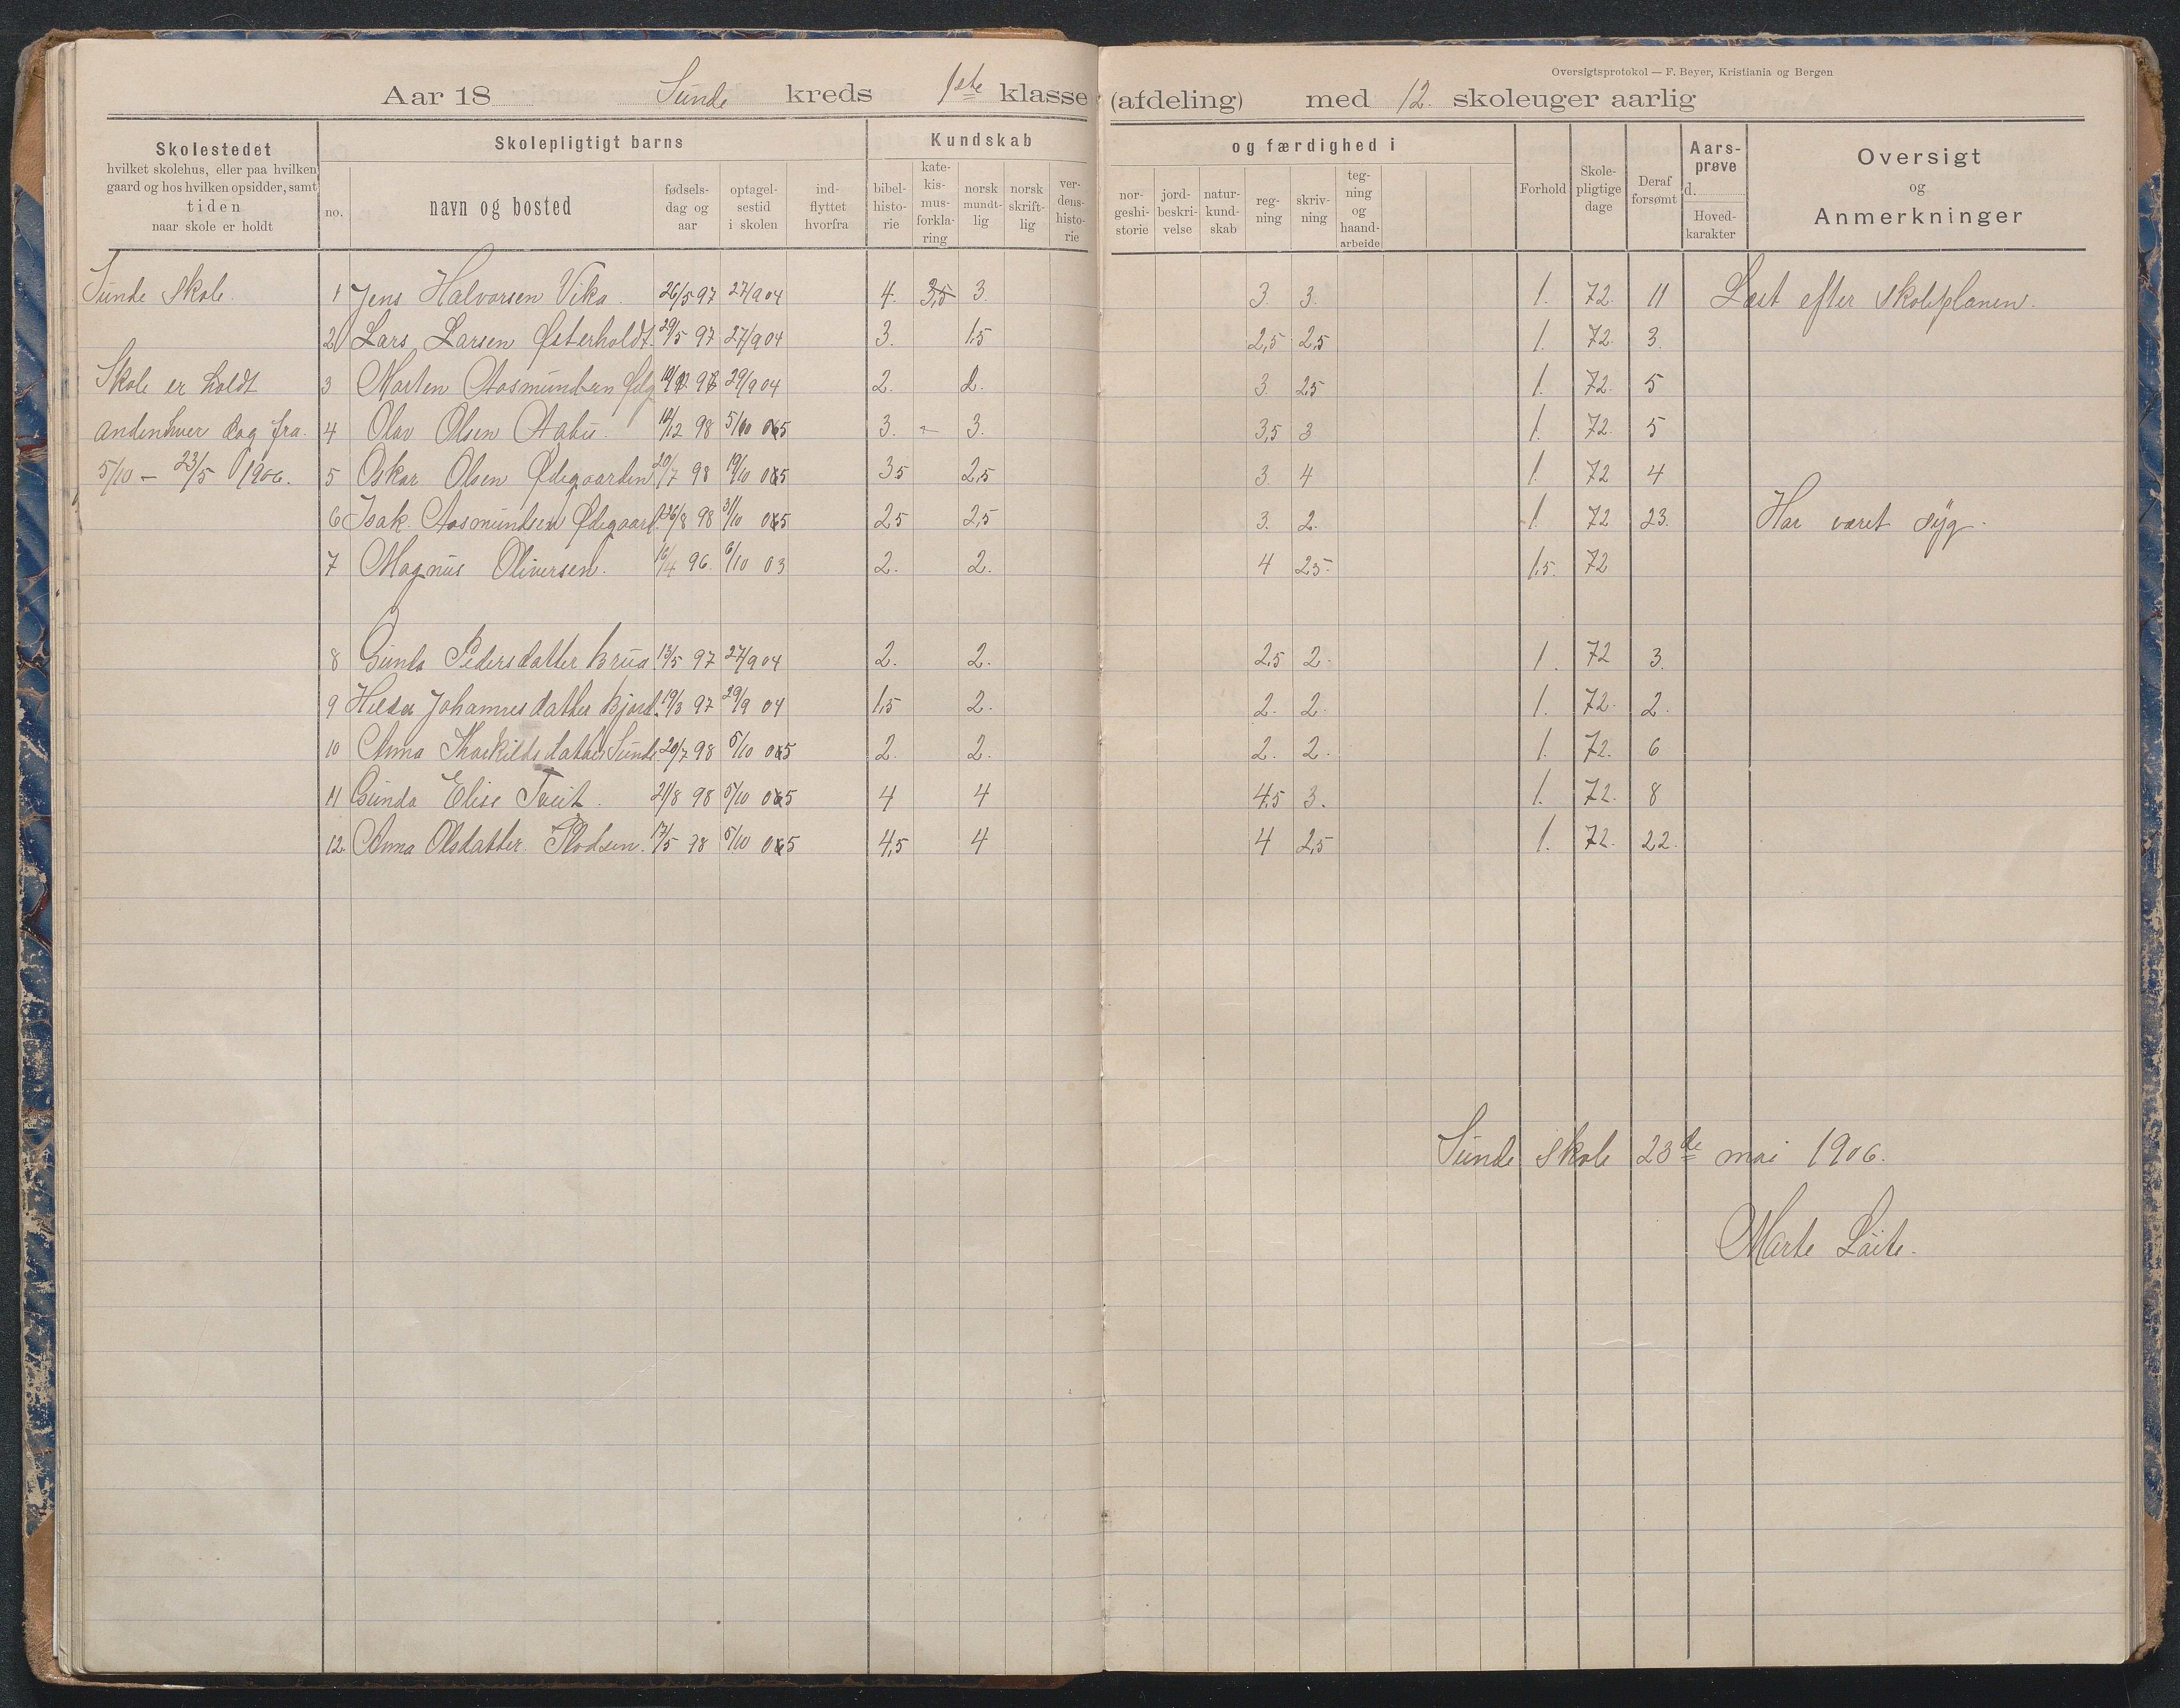 Oversigtsprotokol — F. Beyer, Kristiania og Bergen
Aar 18 Sunde kreds 1ste klasse (afdeling) med 12. skoleuger aarlig
Skolestedet
hvilket skolehus, eller paa hvilken
gaard og hos hvilken opsidder, samt
tiden
naar skole er holdt
Skolepligtigt barns
no.
navn og bosted
fødsels-
dag og
aar
optagel-
sestid
i skolen
ind-
flyttet
hvorfra
Kundskab
bibel-
histo-
rie
kate-
kis-
mus-
forkla-
ring
norsk
mundt-
lig
norsk
skrift-
lig
ver-
dens-
histo-
rie
og færdighed i
nor-
geshi-
storie
jord-
beskri-
velse
natur-
kund-
skab
reg-
ning
skriv-
ning
teg-
ning
og
haand-
arbeide
Forhold
Skole-
pligtige
dage
Deraf
forsømt
Aars-
prøve
d.
Hoved-
karakter
Oversigt
og
Anmerkninger
Sunde Skole.
1 Jens Halvorsen Vika. 26/5 97 27/9 04 4. 3,5 3. 3. 3. 1. 72. 11 Læst efter skoleplanen.
2 Lars Larsen Østerholdt. 29/5 97 27/9 04 3. 1.5 2,5 2,5 1. 72. 3.
Skole er holdt
3 Morten Aasmundsen 29/9 04 2. 2. 3. 2,5 1. 72. 5
andenhver dag fra.
4 Olav Olsen Aabu. 12 98 5/10 05 3. - 3. 3,5 3 1. 72. 5
5/10 - 23/5 1906.
5 Oskar Olsen Ødegaarden 20/7 98 19/10 05 3,5 2,5 3. 4 1. 72 4
6 Isak. Aasmundsen Ødegaard. 26/8 98 31/10 05 2,5 2,5 3. 2. 1. 72 23. Har været syg.
7 Magnus Oliversen. 16/4 96. 6/10 03 2. 2. 4 2,5. 1,5. 72
8 Gunda Pedersdatter Brua 13/5 97 27/9 04 2. 2. 2,5 2. 1. 72 3.
9 Helda Johannesdatter Bjord. 19/3 97 29/9 04 1,5 2. 2. 2. 1. 72. 2.
10 Anna Thorkildsdatter Sunde. 20/7 98 5/10 05 2. 2. 2. 2. 1. 72. 6
11 Gunda Elise Tveit. 21/8 98 5/10 05 4 4 4,5 3. 1. 72. 8
12. Anna Olsdatter. 17/5 98 5/10 05 4,5 4 4 2,5 1. 72. 22.
Sunde skole 23de mai 1906.
Marte Løite.